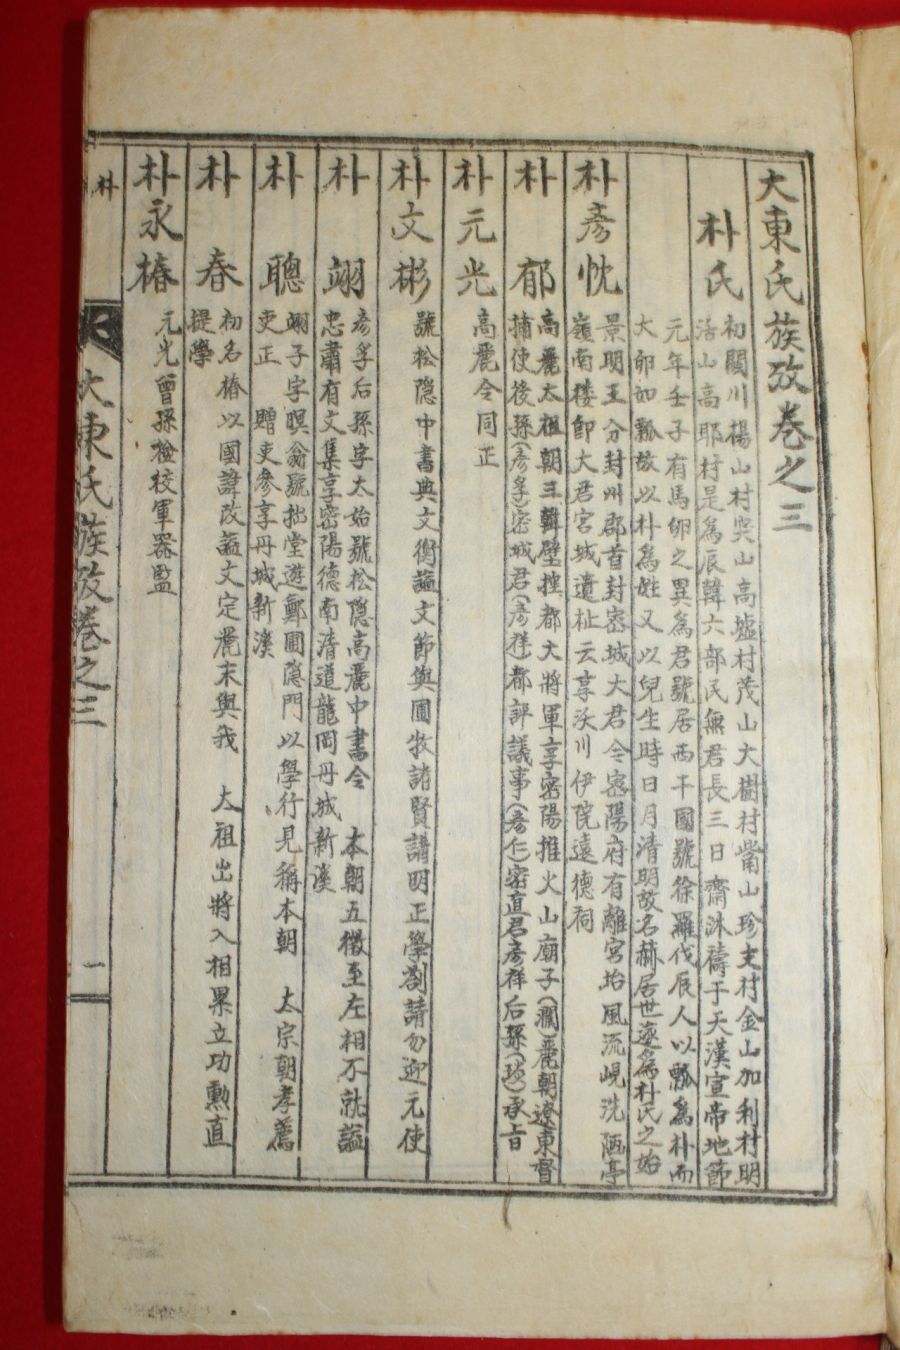 大東氏族攷卷之三
朴氏
初閼川楊山村突山高墟村茂山大樹村觜山珍支村金山加利村明
活山高耶村是爲辰韓六部民無君長三日齋沐禱于天漢宣帝地節
元年壬子有馬卵之異爲君號居西干國號徐羅伐辰人以瓢爲朴而
大卵如瓢故以朴爲姓又以兒生時日月清明故名赫居世遂爲朴氏之始
朴彥忱
景明王分封州郡首封密城大君今密陽府有離宮坮風流峴洗陋亭
嶺南楼卽大君宮城遺址云享沃川伊院遠德祠
朴郁
高麗太祖朝三韓壁控都大將軍享密陽推火山廟子(瀾)麗朝遼東督
捕使後孫(彥孚)密城君(彥祥)都評議事(彥仁)密直君彥祥后孫(琰)承旨
朴元光
高麗令同正
朴文彬
號松隐中書典文衡謚文節與圃牧諸賢講明正學劄請勿迎元使
朴翊
彥孚后孫字太始號松隐高麗中書令 本朝五徵至左相不就謚
忠肅有文集享密陽德南清道龍岡丹城新溪
朴聰
翊子字暝翁號拙堂遊鄭圃隐門以學行見稱本朝 太宗朝孝薦
吏正 贈吏參享丹城新溪
朴春
初名椿以國諱改謚文定麗末與我 太祖出將入相累立功勳直
提學
朴永椿
元光曾孫檢校軍器監
朴
大東氏族攷卷之三
一